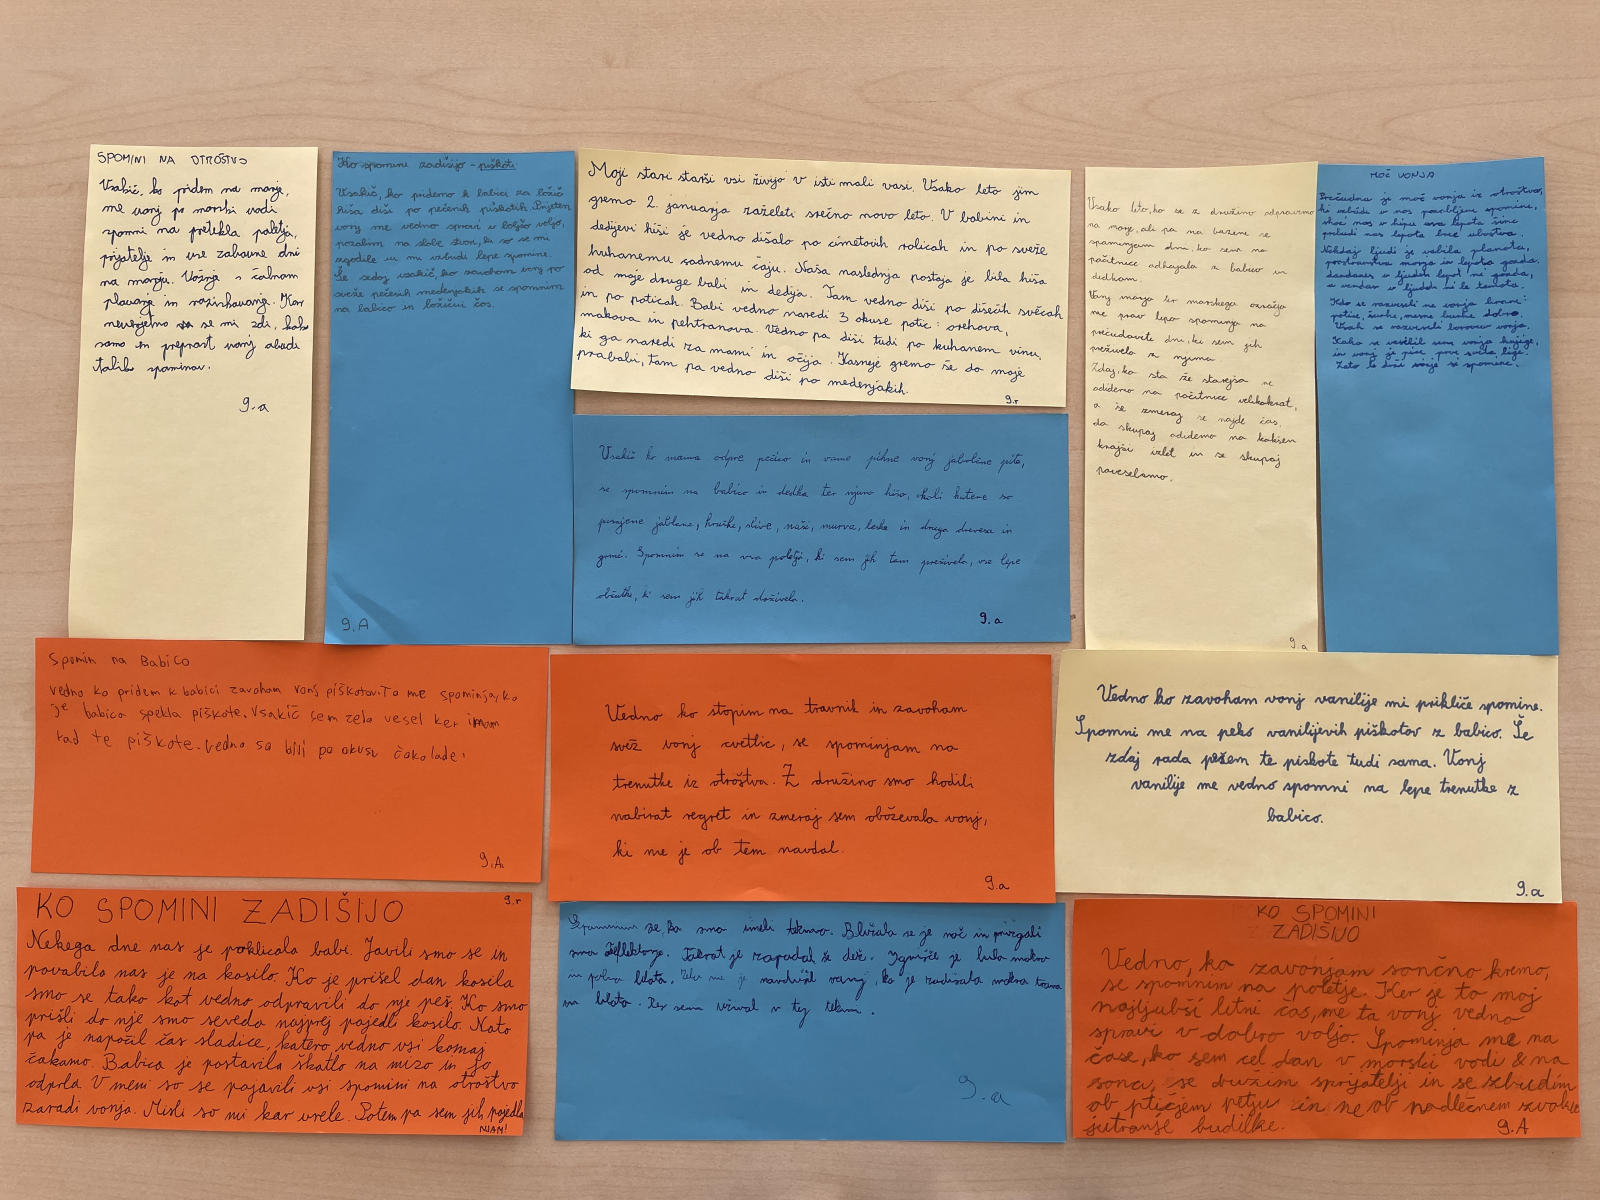 SPOMINI NA OTROŠTVO
Vsakič, ko pridem na morje,
me vonj po morski vodi
spomni na pretekla poletja,
prijatelje in vse zabavne dni
na morju. Vožnja s čolnom
plavanje in raziskovanje. Kar
neverjetno se mi zdi, kako
samo en preprost vonj obudi
toliko spominov.
9.a
Ko spomine zadišijo - piškoti
Vsakič, ko pridemo k babici za božič
hiša diši po pečenih piškotih. Prijeten
vonj me vedno spravi v boljšo voljo,
pozabim na slabe stvari, ki so se mi
zgodile in mi vzbudi lepe spomine.
Še sedaj vsakič, ko zavoham vonj po
sveže pečenih medenjakih se spomnim
na babico in božični čas.
9.A
Moji stari starši vsi živijo v isti mali vasi. Vsako leto jim
gremo 2. januarja zaželeti srečno novo leto. V babini in
dedijevi hiši je vedno dišalo po cimetovih rolicah in po sveže
kuhanemu sadnemu čaju. Naša naslednja postaja je bila hiša
od moje druge babi in dedija. Tam vedno diši po dišečih svečah
in po poticah. Babi vedno naredi 3 okuse potic: orehova,
makova in pehtranova. Vedno pa diši tudi po kuhanem vinu,
ki ga naredi za mami in očija. Kasneje gremo še do moje
prababi, tam pa vedno diši po medenjakih.
9.r
Vsako leto, ko se z družino odpravimo
na morje, ali pa na bazene se
spominjam dni, ko sem na
počitnice odhajala z babico in
dedkom.
Vonj morja ter morskega ozračja
me prav lepo spominja na
prečudovite dni, ki sem jih
preživela z njima.
Zdaj, ko sta že starejša ne
odidemo na počitnice velikokrat,
a še zmeraj se najde čas,
da skupaj odidemo na kakšen
krajši izlet in se skupaj
poveselimo.
9.a
MOČ VONJA
Prečudna je moč vonja iz otroštva,
ki vzbudi v nas pozabljene spomine,
Nekdaj ljudi je vabila planota,
prostranstva morja in lepota gozda,
Vsakič ko mama odpre pečico in vame pihne vonj jabolčne pite,
se spomnim na babico in dedka ter njuno hišo, okoli katere so
posajene jablane, hruške, slive, naši, murva, leska in druga drevesa in
grmi. Spomnim se na vsa poletja, ki sem jih tam preživela, vse lepe
občutke, ki sem jih takrat doživela.
9.a
Spomin na Babico
Vedno ko pridem k babici zavoham vonj piškotov. To me spominja, ko
je babica spekla piškote. Vsakič sem zelo vesel ker imam
rad te piškote. Vedno so bili po okusu čokolade.
9.A
Vedno ko stopim na travnik in zavoham
svež vonj cvetlic, se spominjam na
trenutke iz otroštva. Z družino smo hodili
nabirat regret in zmeraj sem oboževala vonj,
ki me je ob tem navdal.
9.a
Vedno ko zavoham vonj vanilije mi prikliče spomine.
Spomni me na peko vanilijevih piškotov z babico. Še
zdaj rada pečem te piškote tudi sama. Vonj
vanilije me vedno spomni na lepe trenutke z
babico.
9.a
KO SPOMINI ZADIŠIJO
9.r
Nekega dne nas je poklicala babi. Javili smo se in
povabila nas je na kosilo. Ko je prišel dan kosila
smo se tako kot vedno odpravili do nje peš. Ko smo
prišli do nje smo seveda najprej pojedli kosilo. Nato
pa je napočil čas sladice, katero vedno vsi komaj
čakamo. Babica je postavila škatlo na mizo in jo
odprla. V meni so se pojavili vsi spomini na otroštvo
zaradi vonja. Misli so mi kar vrele. Potem pa sem jih pojedla
NJAM!
Spominim se, ko smo imeli tekmo. Bližala se je noč in prižgali
smo reflektorje. Takrat je zapadal še dež. Igrišče je bilo mokro
in polno blata. Zelo me je navdušil vonj, ko je zadišala mokra trava
in blato. Res sem užival v tej tekmi.
9.a
KO SPOMINI
ZADIŠIJO
Vedno, ko zavonjam sončno kremo,
se spomnim na poletje. Ker je to moj
najljubši letni čas, me ta vonj vedno
spravi v dobro voljo. Spominja me na
čase, ko sem cel dan v morski vodi & na
soncu, se družim s prijatelji in se zbudim
ob ptičjem petju in ne ob nadležnem zvoku
jutranje budilke.
9.A